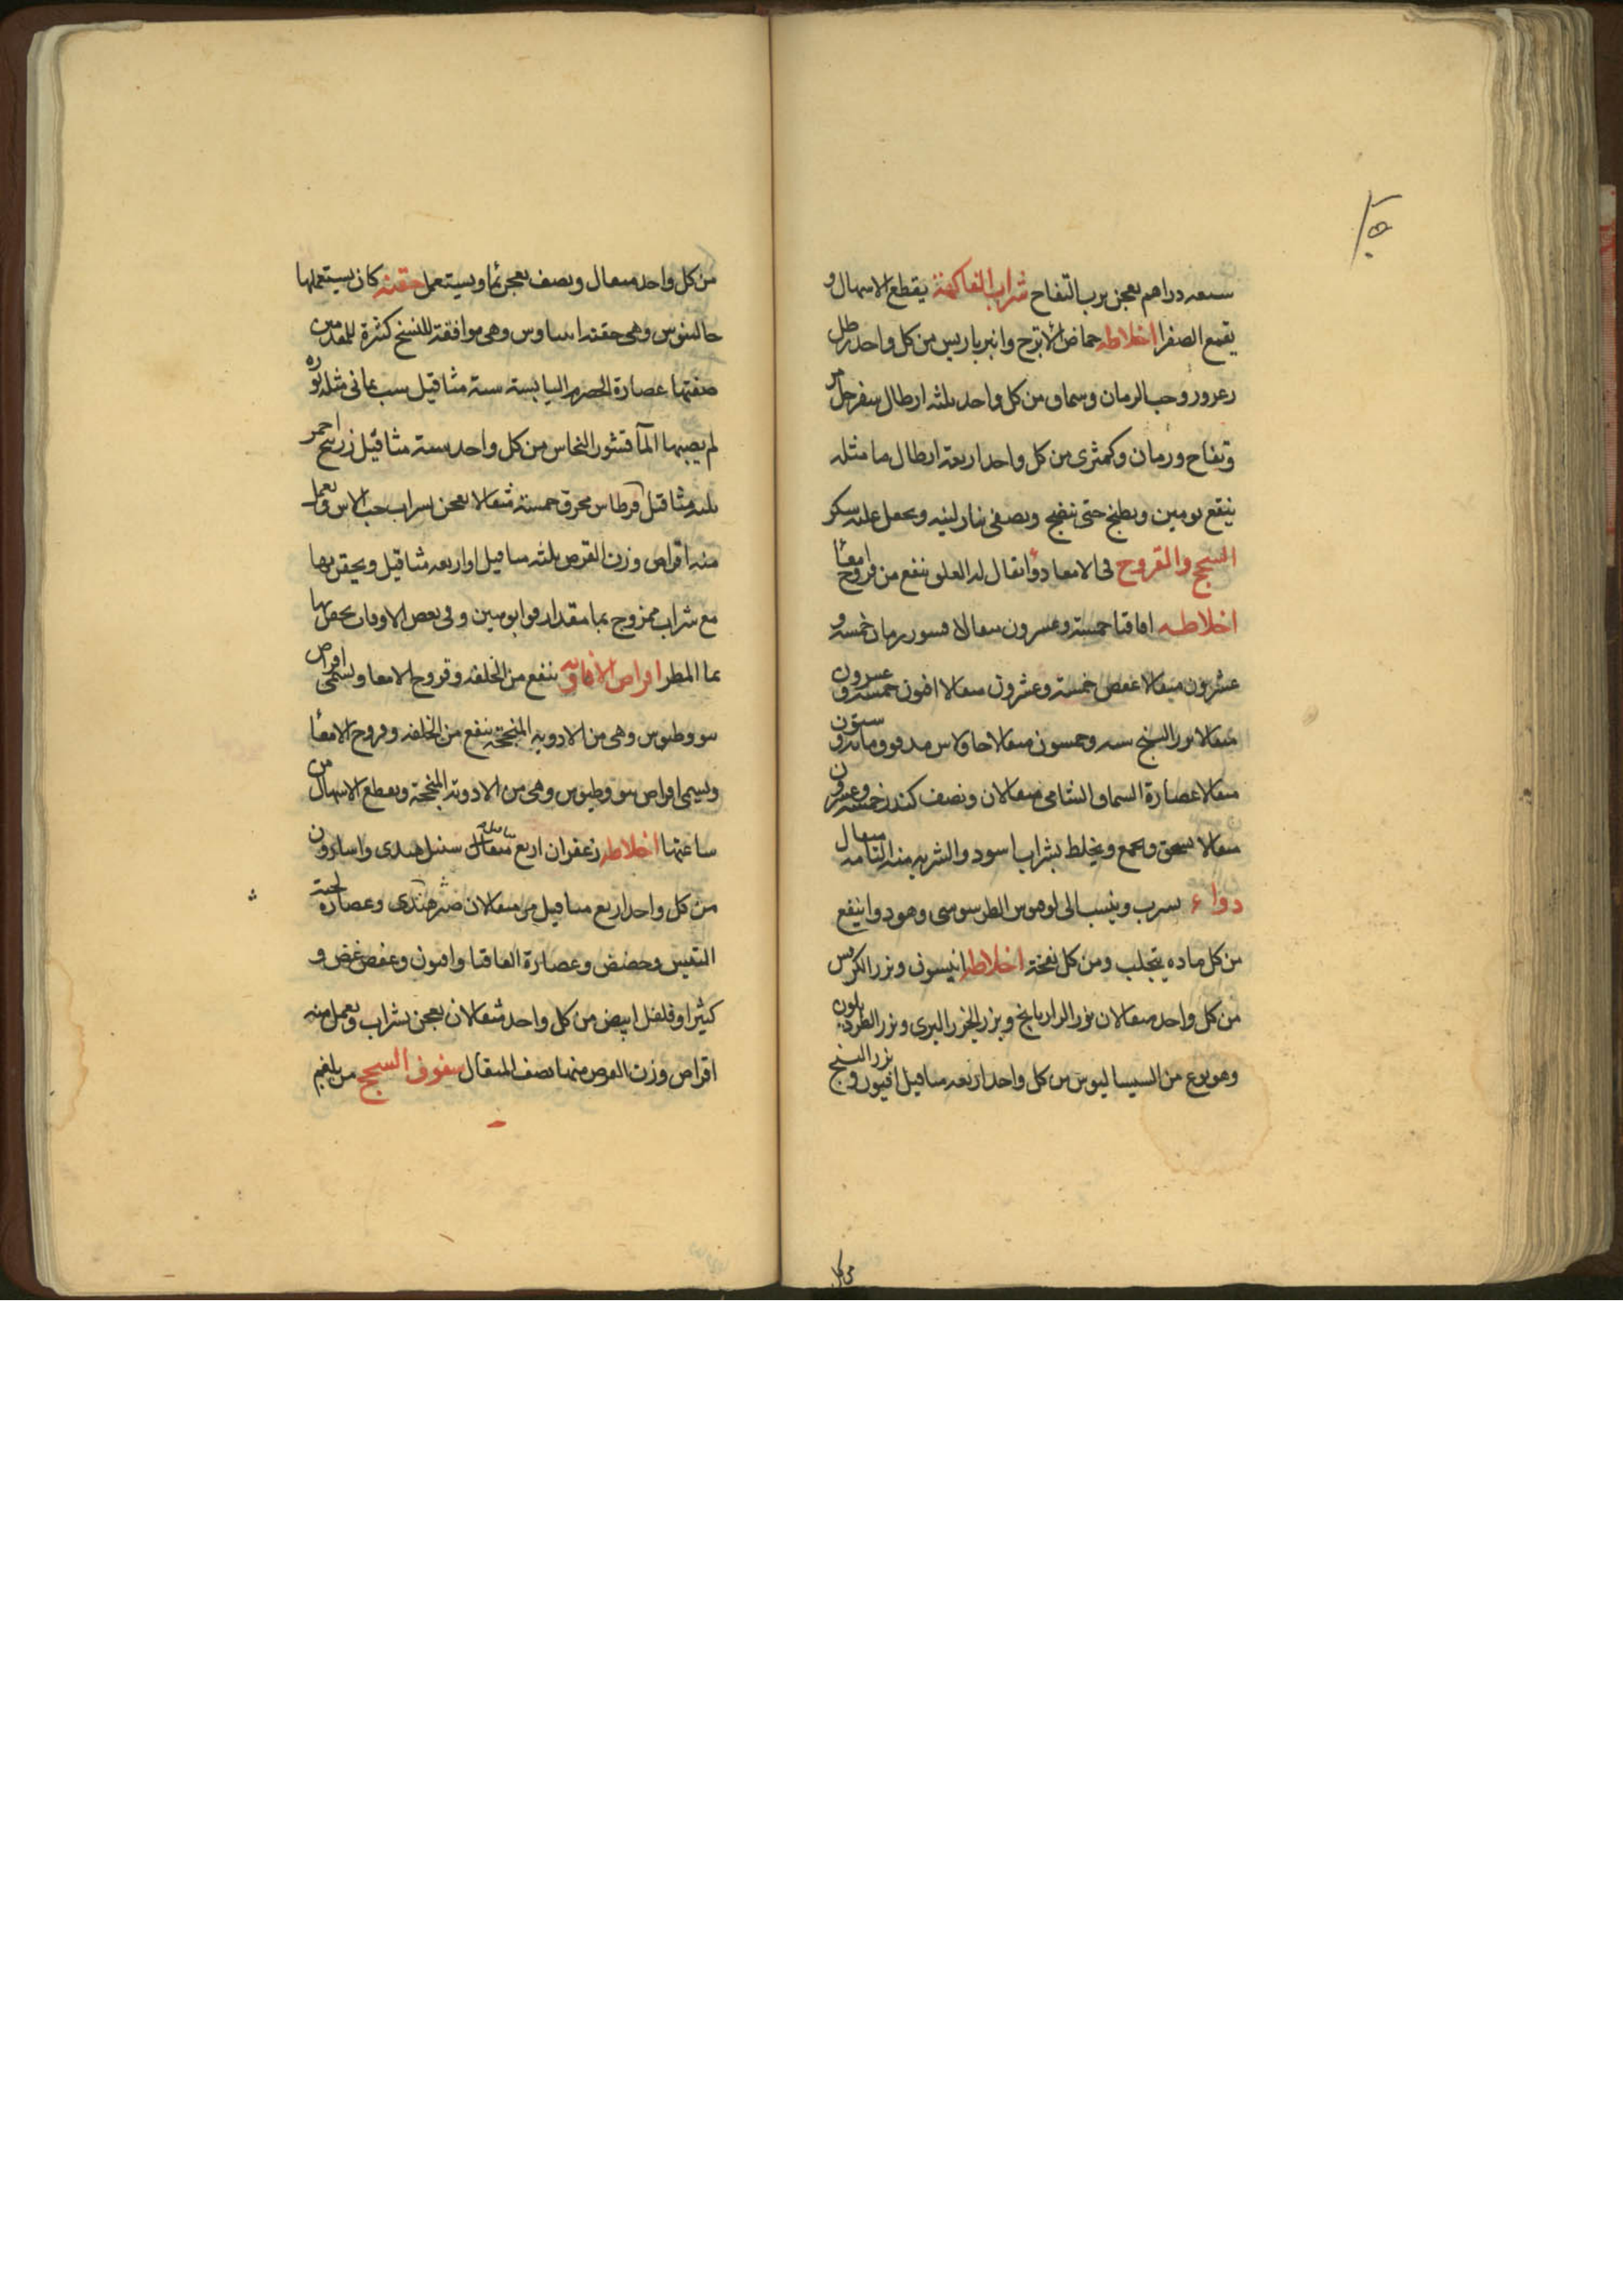 سبعه دراهم يعجن برب التفاح شراب الفاكهة يقطع الاسهال و
يقمع الصفرا اخلاطه حماض الاترج وانبرباريس من كل واحد رطل
زعرور وحب الرمان وسماق من كل واحد ثلثه ارطال سفرجل مر
وتفاح ورمان وكمثرى من كل واحد اربعة ارطال ما مثله
ينقع يومين ويطبخ حتى ينضج ويصفى بنار لينه ويجعل عليه سكر
السحج والقروح فى الامعا دوا يقال له العلوى ينفع من قروح امعا
اخلاطه اقاقيا خمسة وعشرون مثقالا قشور رمان خمسه و
عشرون مثقالا عفص خمسة وعشرون مثقالا افيون خمسه و عشرون
مثقالا بزر البنج سته وخمسون مثقالا مدقوق مائه و ستون
مثقالا عصارة السماق الشامى مثقالان ونصف كندر خمسه وعشرون
مثقالا يسحق ويجمع ويخلط بشراب اسود والشربه منه التامه مثقال
دواء يشرب وينسب الى الطرسوسى وهو دوا ينفع
من كل ماده يتجلب ومن كل نفخة اخلاطه انيسون وبزر الكرفس
من كل واحد مثقالان بزر الرازيانج وبزر الجزر البرى وبزر
وهو نوع من السيساليوس من كل واحد اربعه مثاقيل افيون و بزر البنج
من كل
من كل واحد مثقال ونصف يعجن بما ويستعمل حقنه كان يستعملها
جالينوس وهى حقنه وهى موافقة للنسخ كثيرة للمقدمين
صفتها عصارة الحصرم اليابسة ستة مثاقيل شب يمانى مثله نوره
لم يصبها المآ قشور النحاس من كل واحد سته مثاقيل زرنيخ احمر
ثلثه مثاقيل قرطاس محرق خمسة مثقالا يعجن بشراب حب الاس ويعمل
منه اقراص وزن القرص ثلثه مثاقيل او اربعه مثاقيل ويحقن بها
مع شراب ممزوج بما مقدار وفى بعض الاوقات يحقن بها
بما المطر اقراص الافاويه ينفع من الخلفه وقروح الامعا ويسمى اقراص
وهى من الادويه المنجحة ينفع من الخلفه وقروح الامعآ
ويسمى اقراص وهى من الادوية المنجحة ويقطع الاسهال من
ساعتها اخلاطه زعفران اربع مثاقيل سنبل هندى واسارون
من كل واحد اربع مثاقيل مر مثقالان هندى وعصارة لحية
التيس وحضض وعصارة القاقيا وافيون وعفص غض و
كثيرا وفلفل ابيض من كل واحد مثقالان يعجن بشراب ويعمل منه
اقراص وزن القرص منها نصف المثقال سفوف السحج من بلغم